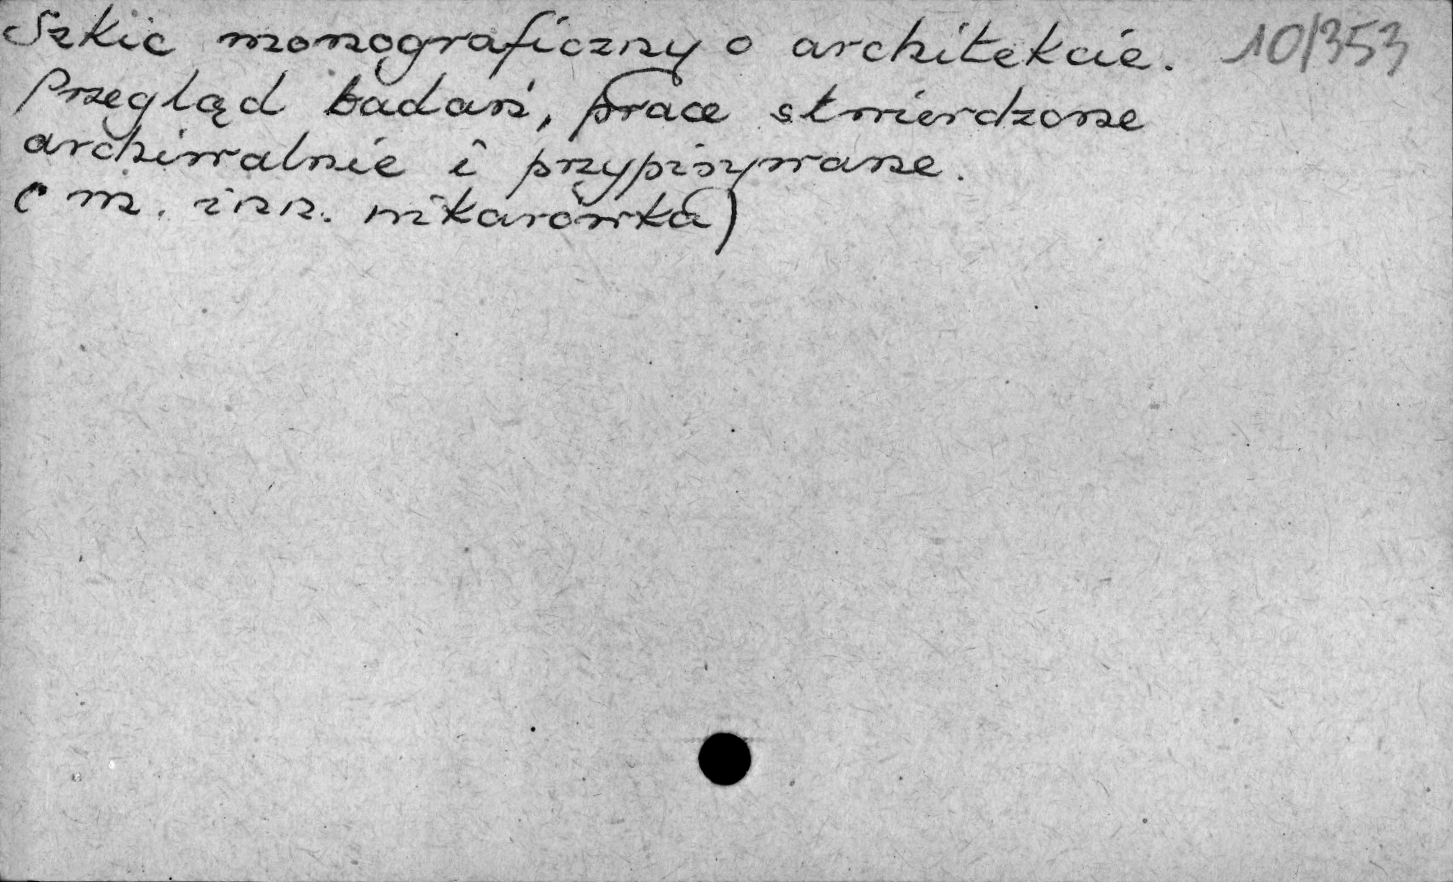 Szkic monograficzny o architekcie. 10/353
Przegląd badań, prace stwierdzone
archiwalnie i przypisywane.
(m. inn. wikarówka)